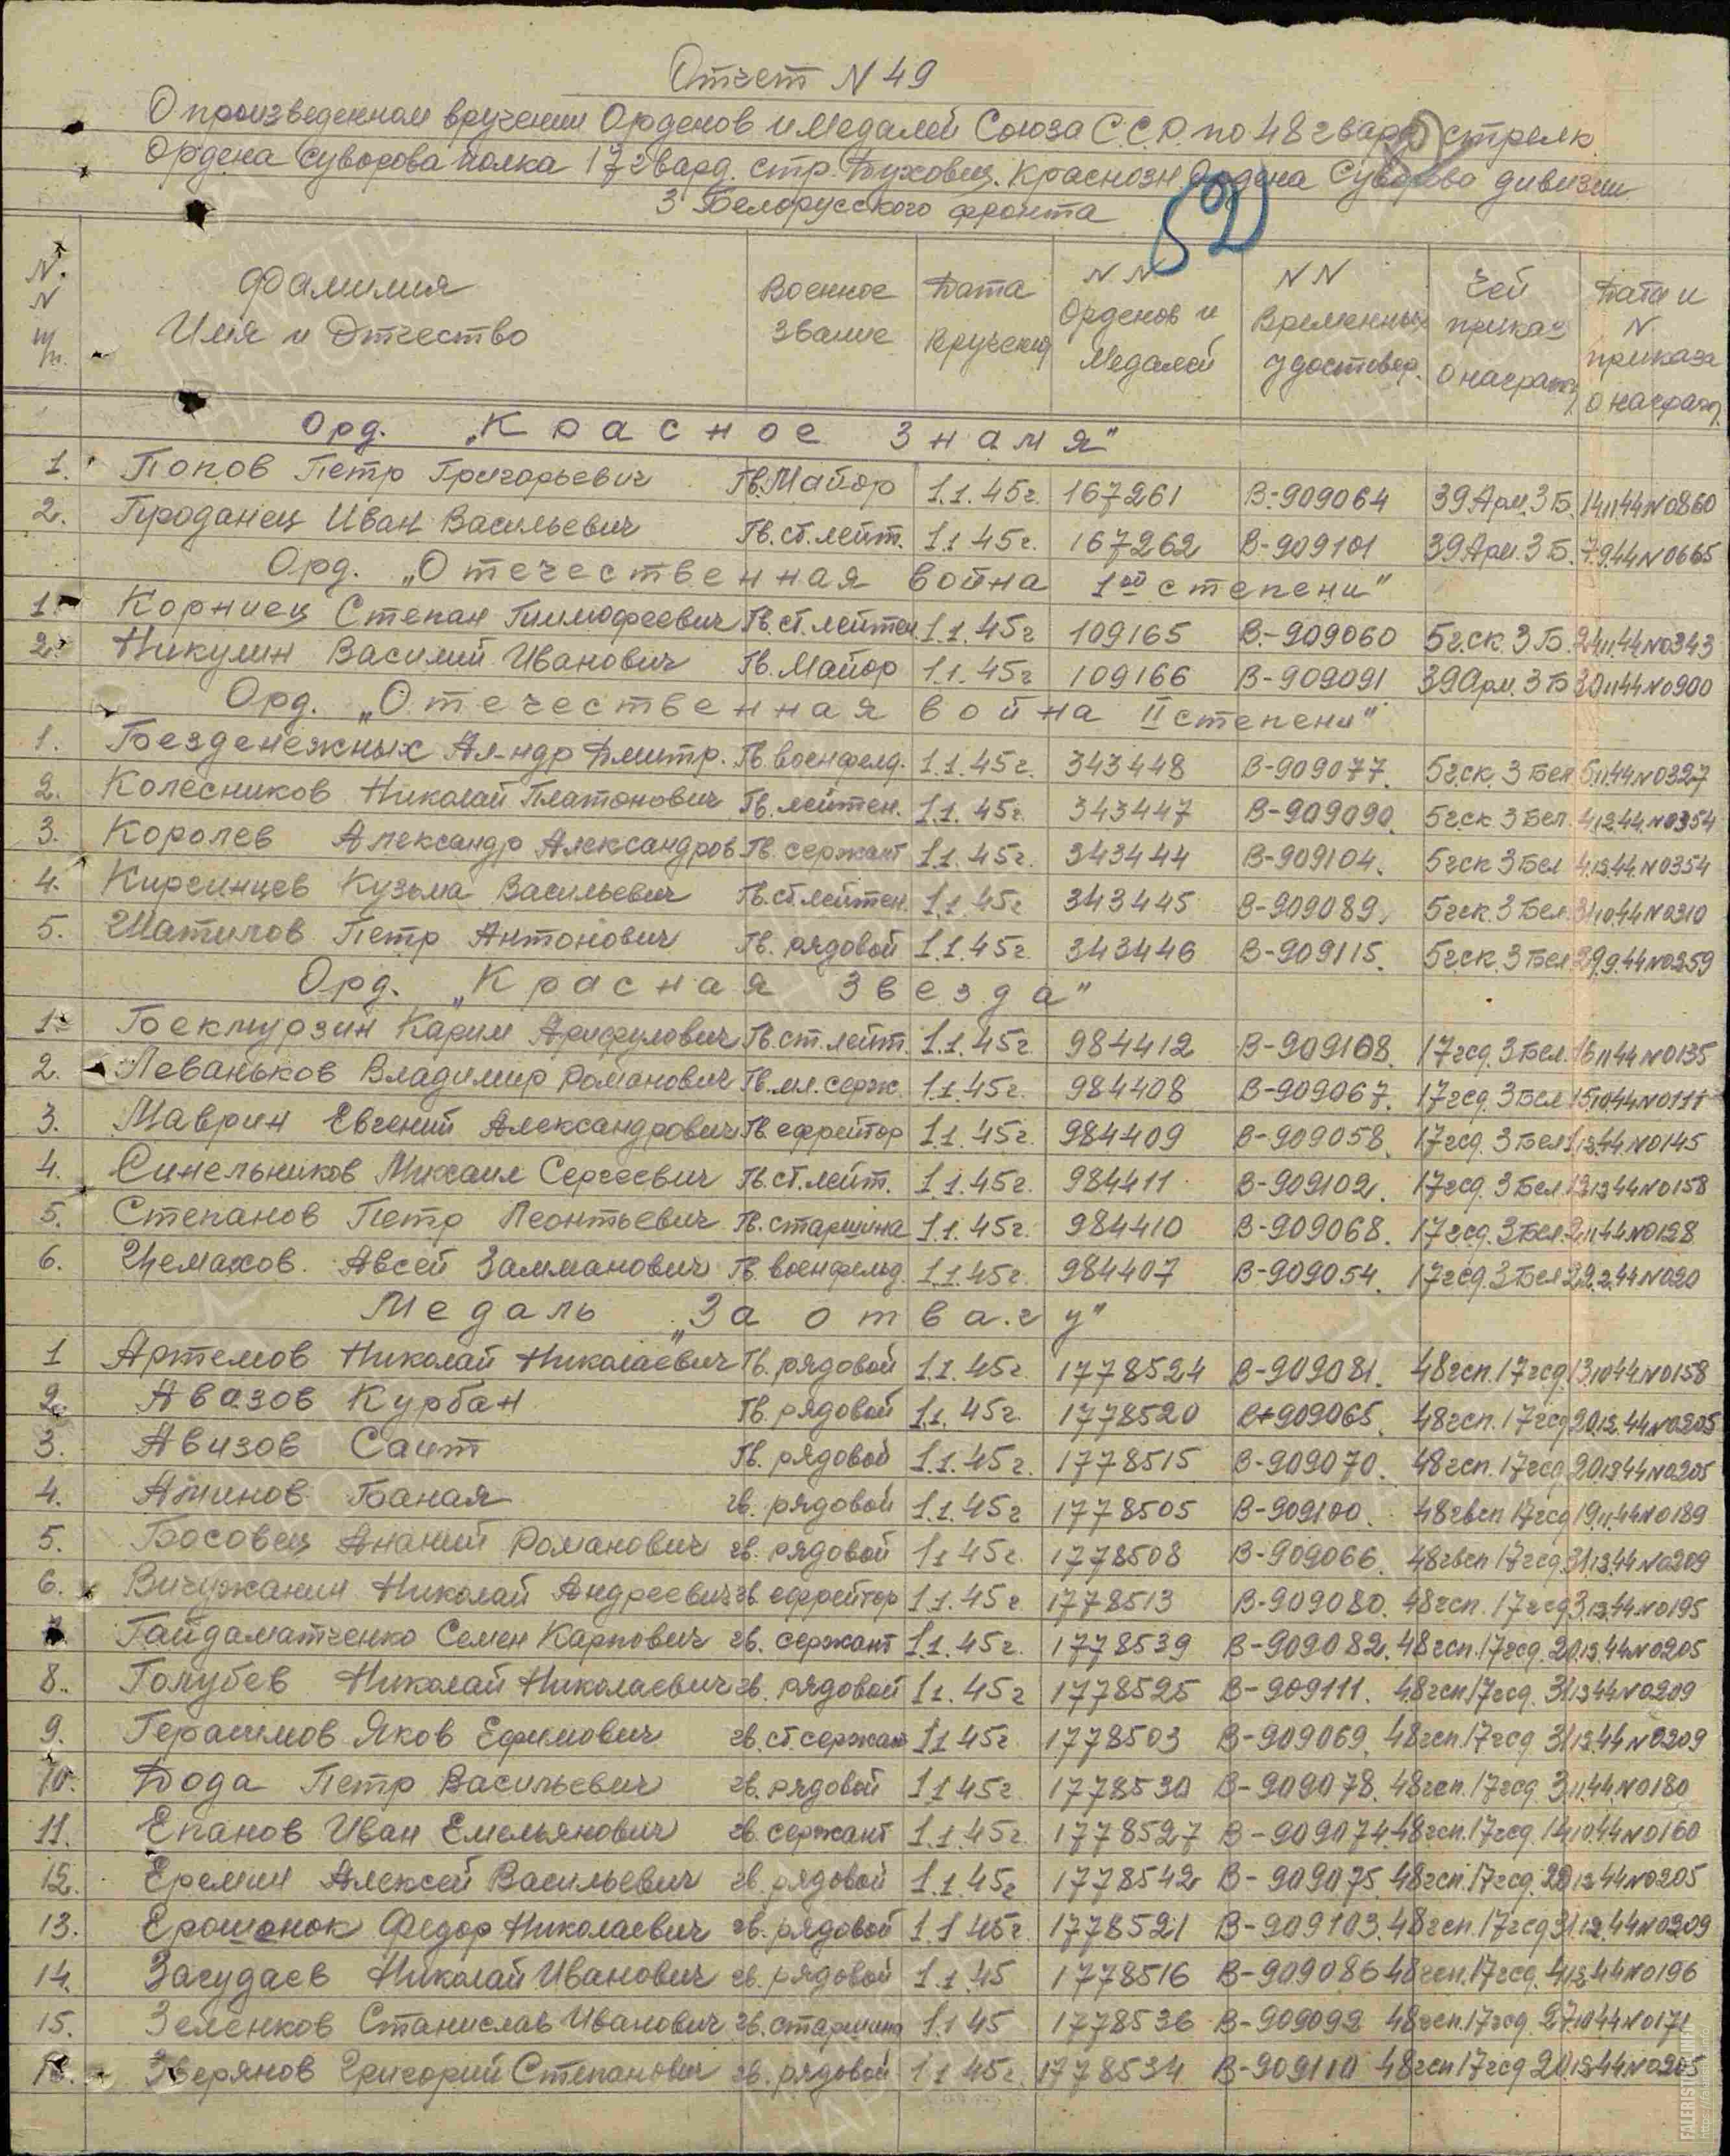 Отчет N 49
О произведенном вручении Орденов и Медалей Союза С.С.Р. по 48 гвард стрелк.
Ордена Суворова полка 17 гвард. стр. Духовщ. Краснозн Ордена Суворова дивизии
3 Белорусского фронта
52
N. N п/п. Фамилия Имя и Отчество Военное звание Дата вручения N N Орденов и Медалей N N Временных удостовер. Чей приказ о награжд Дата и N приказа о награжд.
Орд. „Красное Знамя"
1. Попов Петр Григорьевич Гв. Майор 1.1.45г. 167261 В-909064 39 Арм. 3 Б. 14.11.44 N 0860
2. Гироданец Иван Васильевич Гв. ст. лейт. 1.1.45г. 167262 В-909101 39 Арм. 3 Б. 7.9.44 N 0665
Орд. „Отечественная война 1ой степени"
1. Корниец Степан Тимофеевич Гв. ст. лейтен. 1.1.45г 109165 В-909060 5 г.ск. 3 Б. 24.11.44 N 0343
2. Никулин Василий Иванович Гв. Майор 1.1.45г 109166 В-909091 39 Арм. 3 Б 30.11.44 N 0900
Орд. „Отечественная война II степени"
1. Безденежных Ал-ндр Дмитр. Гв. военфелд. 1.1.45г. 343448 В-909077. 5 гск. 3 Бел 5.11.44 N 0327
2. Колесников Николай Платонович Гв. лейтен. 1.1.45г. 343447 В-909090. 5 гск. 3 Бел. 4.12.44. N 0354
3. Королев Александр Александров Гв. сержант 1.1.45г. 343444 В-909104. 5 гск 3 Бел 4.12.44. N 0354
4. Кузьма Васильевич Гв. ст. лейтен. 1.1.45г 343445 В-909089. 5 гск. 3 Бел. 31.10.44 N 0310
5. Шатилов Петр Антонович Гв. рядовой 1.1.45г. 343446 В-909115. 5 гск. 3 Бел 29.9.44 N 0259
Орд. „Красная Звезда"
1. Бекмурзин Карим Арифулович Гв. ст. лейт. 1.1.45г. 984412 В-909108. 17 гсд. 3 Бел. 16.11.44 N 0135
2. Леваньков Владимир Романович Гв. мл. серж. 1.1.45г. 984408 В-909067. 17 гсд. 3 Бел 15.10.44 N 0111
3. Маврин Евгений Александрович Гв. ефрейтор 1.1.45г. 984409 В-909058. 17 гсд. 3 Бел 1.12.44 N 0145
4. Синельников Михаил Сергеевич Гв. ст. лейт. 1.1.45г. 984411 В-909102. 17 гсд. 3 Бел 12.12.44 N 0158
5. Степанов Петр Леонтьевич Гв. старшина 1.1.45г. 984410 В-909068. 17 гсд. 3 Бел. 2.11.44 N 0128
6. Цемахов Авсей Залманович Гв. военфельд. 1.1.45г. 984407 В-909054. 17 гсд. 3 Бел 22.2.44 N 020
Медаль „За отвагу"
1 Артемов Николай Николаевич Гв. рядовой 1.1.45г. 1778524 В-909081. 48 гсп. 17 гсд. 13.10.44 N 0158
2. Авазов Курбан Гв. рядовой 1.1.45г. 1778520 В-909065. 48 гсп. 17 гсд 20.12.44 N 0205
3. Авизов Саит Гв. рядовой 1.1.45г. 1778515 В-909070. 48 гсп. 17 гсд 20.12.44 N 0205
4. Аминов Баная гв. рядовой 1.1.45г 1778505 В-909100. 48 гвсп 17 гсд 19.11.44 N 0189
5. Босовец Ананий Романович гв. рядовой 1.1 45г. 1778508 В-909066. 48 гвсп 17 гсд. 31.12.44 N 0209
6. Вичужанин Николай Андреевич гв. ефрейтор 1.1.45г. 1778513 В-909080. 48 гсп. 17 гсд 3.12.44 N 0195
7 Гайдаматченко Семен Карпович гв. сержант 1.1.45г. 1778539 В-909082. 48 гсп. 17 гсд. 20.12.44 N 0205
8. Голубев Николай Николаевич гв. рядовой 1.1.45г 1778525 В-909111. 48 гсп 17 гсд. 31.12.44 N 0209
9. Герасимов Яков Ефимович гв. ст. сержант 1.1.45г. 1778503 В-909069. 48 гсп. 17 гсд 31.12.44 N 0209
10. Дода Петр Васильевич гв. рядовой 1.1.45г. 1778530 В-909078. 48 гсп. 17 гсд 3.11.44 N 0180
11. Епанов Иван Емельянович гв. сержант 1.1.45г. 1778527 В-909074 48 гсп. 17 гсд. 14.10.44 N 0160
12. Еремин Алексей Васильевич гв. рядовой 1.1.45г 1778542 В-909075. 48 гсп. 17 гсд. 20.12.44 N 0205
13. Ерошонок Федор Николаевич гв. рядовой 1.1.45г. 1778521 В-909103. 48 гсп. 17 гсд 31.12.44 N 0209
14. Загудаев Николай Иванович гв. рядовой 1.1.45 1778516 В-909086 48 гсп. 17 гсд. 4.12.44 N 0196
15. Зеленков Станислав Иванович гв. старшина 1.1.45 1778536 В-909092 48 гсп. 17 гсд. 27.10.44 N 0171
16. Зверянов Григорий Степанович гв. рядовой 1.1.45г. 1778534 В-909110 48 гсп 17 гсд 20.12.44 N 0205